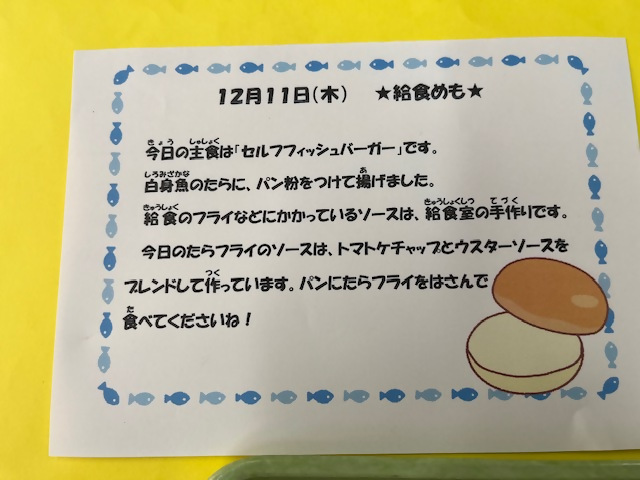 12月11日(木)　★給食めも★
きょう　しゅしょく
今日の主食は「セルフフィッシュバーガー」です。
しろみざかな　あ
白身魚のたらに、パン粉をつけて揚げました。
きゅうしょく　きゅうしょくしつ　てづく
給食のフライなどにかかっているソースは、給食室の手作りです。
今日のたらフライのソースは、トマトケチャップとウスターソースを
つく
ブレンドして作っています。パンにたらフライをはさんで
た
食べてくださいね！